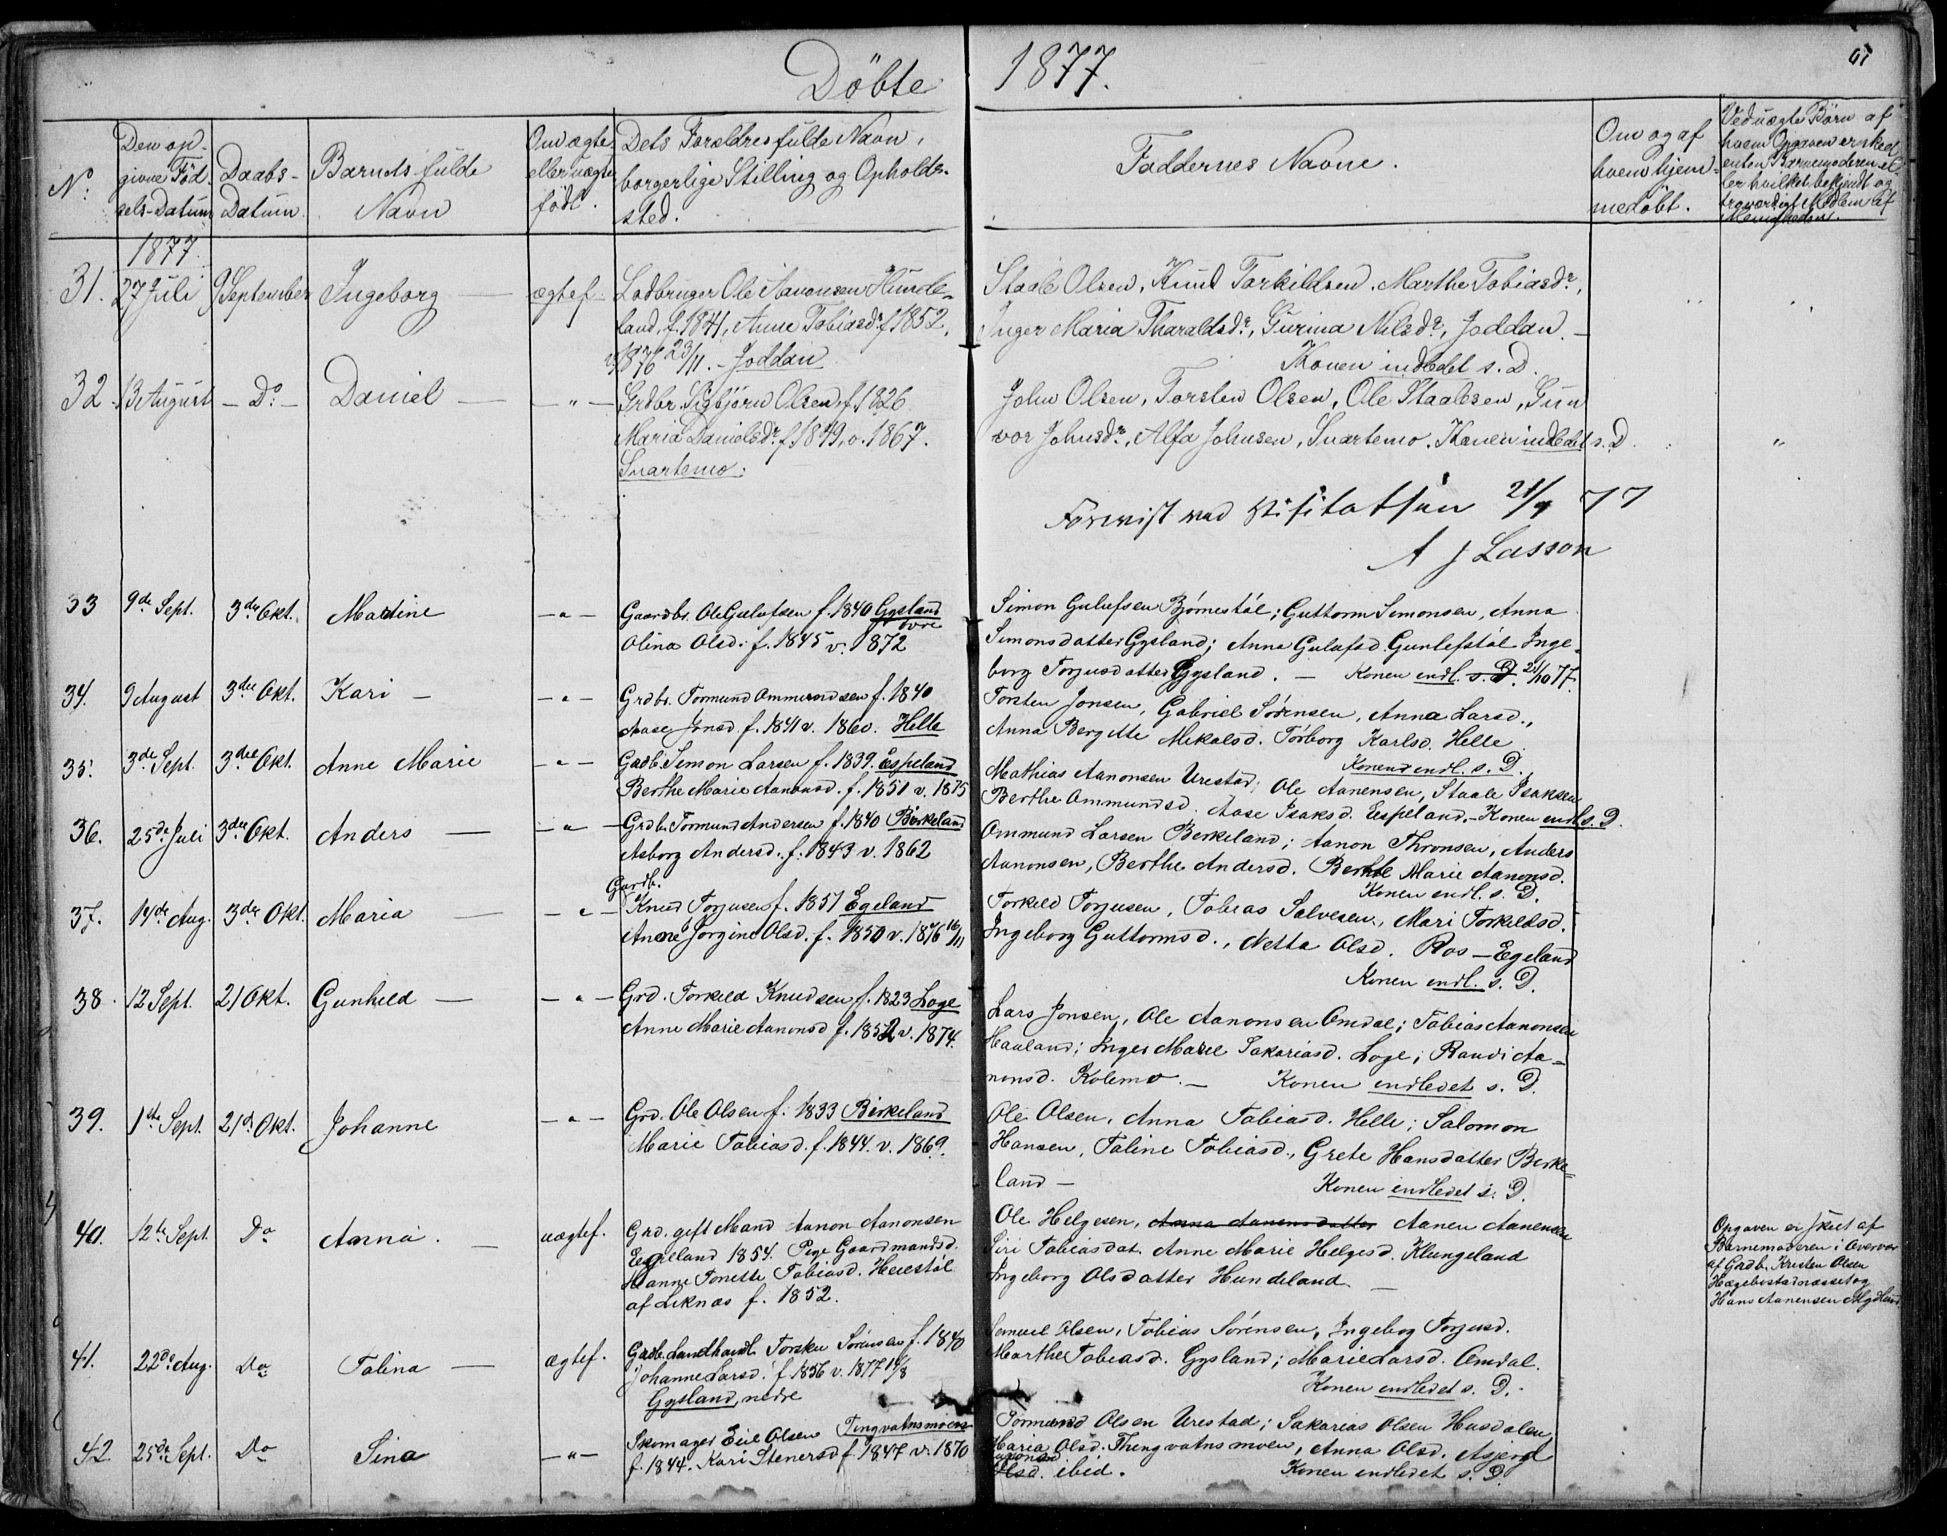 Döbte 1877. 67
N.
Den op-
givne Föd-
sels-Datum
Daabs-
Datum
Barnets fulde
Navn
Om ægte
eller uægte
född.
Dets Forældres fulde Navn,
borgerlige Stilling og Opholds-
sted.
Faddernes Navne.
Om og af
hvem hjem-
medöbt.
Ved uægte Börn af
hvem Opgaven er skeet
enten Barnemoderen el-
ler hvilket bekjendt og
troværdigt Medlem af
Menigheden.
1877.
31. 27 Juli 9 September Ingeborg — ægtef. Lodbruger Ole Aanonsen Hunde-
land, f. 1841, Anne Tobiasdr f 1852,
v. 1876 23/11. - Joddan
Staale Olsen, Knud Torkildsen, Marthe Tobiasdr,
Inger Maria Tharaldsdr, Gurina Nilsdr, Joddan. —
Konen indledet s. D.
32. 13 August — Do — Daniel — — " — Grdbr. Sigbjörn Olsen f. 1826.
Maria Danielsdr f. 1849, v. 1867.
Snartemo.
John Olsen, Torsten Olsen, Ole Staalesen, Gun
vor Johnsdr, Alfa Johnsen, Snartemo. Konen indledet s. D.
Forevist ved Visitatsen 21/9 77
A J Lasson
33 9de Sept. 3die Okt. Martine — " — Gaardbr. Ole Gulufsen f. 1840 Gysland
övre
Olina Olsd. f. 1845 v. 1872
Simon Gulufsen Bjørnestøl; Guttorm Simonsen, Anna
Simonsdatter Gysland; Anna Gulufsd. Gunlefstøl Inge-
borg Torjusdatter Gysland. — Konen endl. s. D. 21/10 77.
34. 9 August 3die Okt. Kari — — " — Grdbr. Tormund Ommundsen f. 1840
Aase Jonsd f. 1841 v. 1860. Helle
Torsten Jonsen, Gabriel Sörensen, Anna Larsd.,
Anna Bergitte Mikalsd. Torborg Karlsd. Helle
Konen endl. s. D.
35. 3die Sept. 3die Okt. Anne Marie — " — Grdb. Simon Larsen f. 1839. Espeland
Berthe Marie Aanonsd. f. 1851 v. 1875
Mathias Aanonsen Urestad; Ole Aanensen, Staale Isaksen
Berthe Ommundsd. Aase Isaksd. Eespeland. — Konen endl. s. D.
36. 25de Juli 3die Okt. Anders — — " — Grdb. Tormund Andersen f. 1840 Birkeland
Asborg Andersd. f. 1843 v. 1862
Ommund Larsen Berkeland; Aanon Thronsen, Anders
Aanonsen, Berthe Andersd. Berthe Marie Aanonsd.
Konen endl. s. D.
37. 14de Aug. 3die Okt. Maria — — " — Gardb.
Knud Torjusen f. 1851 Egeland
Anne Jorgine Olsd. f. 1850 v. 1876 16/11
Torkild Torjusen, Tobias Salvesen, Mari Torkildsd.
Ingeborg Guttormsd., Netta Olsd. Ros — Egeland
Konen endl. s. D.
38. 12 Sept. 21 Okt. Gunhild — — " — Grd. Torkild Knudsen f. 1823 Loge
Anne Marie Aanonsd f. 1852 v. 1874.
Lars Jonsen, Ole Aanonsen Omdal; Tobias Aanonsen
Haaland; Inger Marie Sakariasd. Loge; Randi Aa-
nonsd. Kolemo. — Konen endledet s. D.
39. 1ste Sept. 21de Okt. Johanne — " — Grd. Ole Olsen f. 1833 Birkeland
Marie Tobiasd. f. 1844. v. 1869.
Ole Olsen, Anna Tobiasd. Helle; Salomon
Hansen, Taline Tobiasd., Grete Hansdatter Berke-
land — Konen endledet s. D.
40. 12te Sept. Do Anna. — uægtef. Grd. gift Mand Aanon Aanonsen
Eegeland 1854. Pige Gaardmandsd.
Hanne Tonette Tobiasd. Heiestöl
af Liknæs f. 1852.
Ole Helgesen, Anna Aanensdatter Aanen Aanensen
Siri Tobiasdat. Anne Marie Helgesd. Klungeland
Ingeborg Olsdatter Hundeland —
Opgaven er skeet af
Barnemoderen i Overvær
af Grdb. Kristen Olsen
Hægebostadnæsset og
Hans Aanensen Mydland
41. 22de Aug. Do Talina — ægtef. Grdb. Landhandl. Torskn Sörensen f. 1840
Johanne Larsd. f 1856 v. 1877 14/3
Gysland, nedre
Samuel Olsen, Tobias Sörensen, Ingeborg Torjusd.
Marthe Tobiasd. Gysland; Marie Larsd. Omdal.
Konen endledet s. D.
42. 25de Sept. Do Sina — " — Skomager Eiel Olsen Tingvatnsmoen
f. 1844. Kari Stenersd f 1847 v. 1870
Tormund Olsen Urestad; Sakarias Olsen Husdalen
Maria Olsd. Thengvatnsmoen, Anna Olsd. Asjerd
Olsd. ibid. Konen endledet s. D.